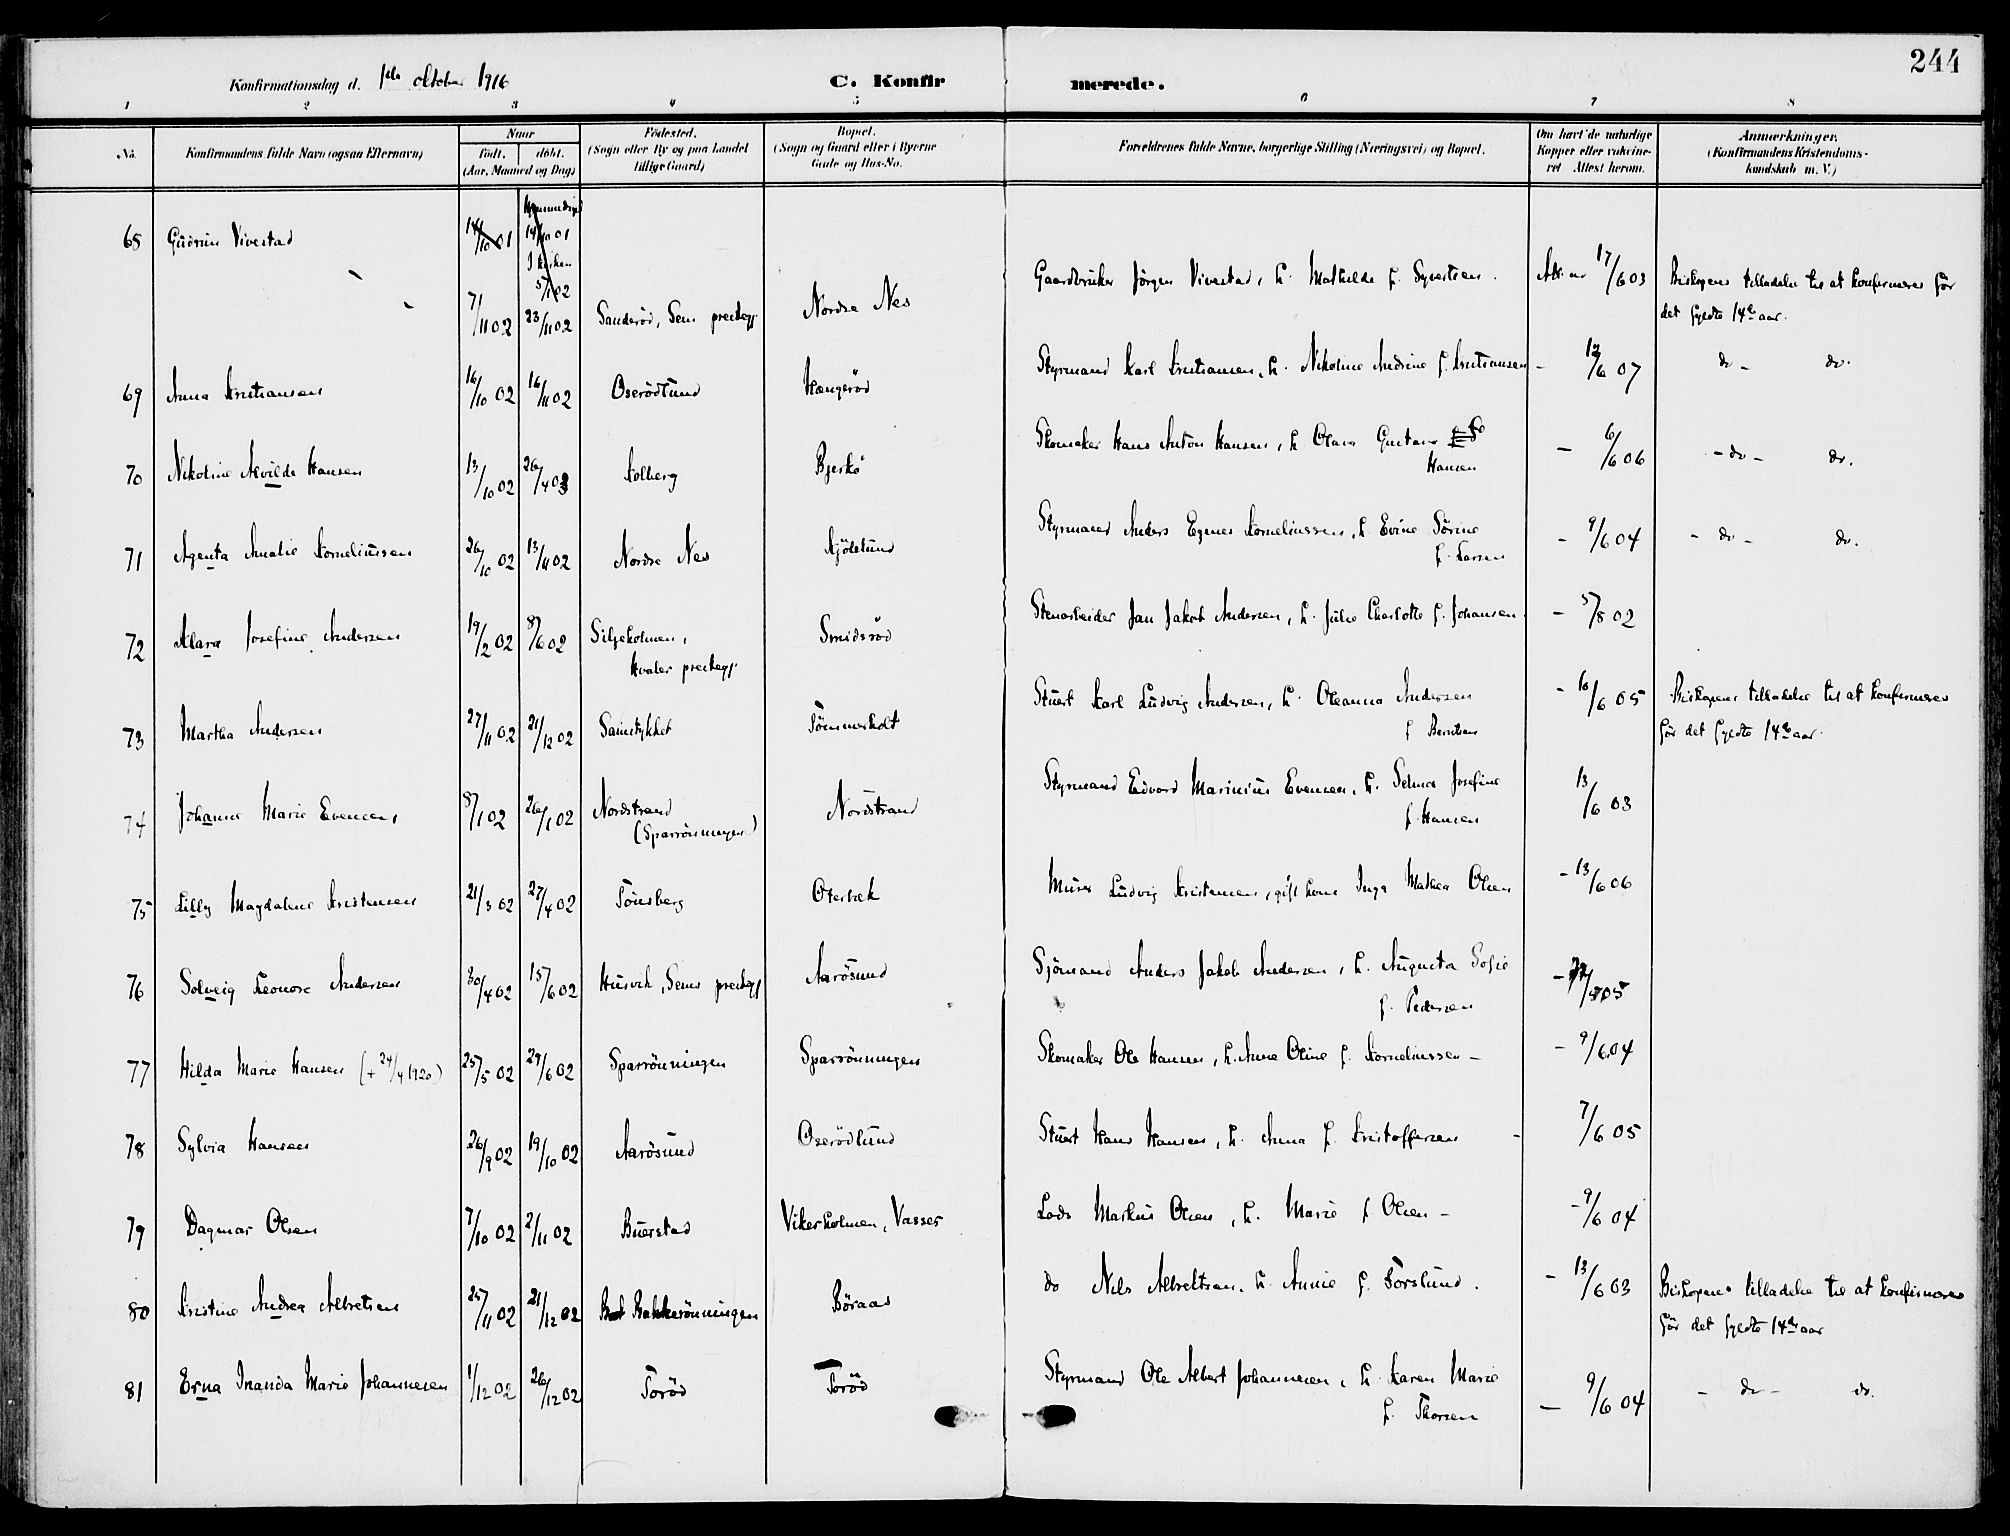 244
Konfirmationsdag d. 1ste oktober 1916 C. Konfirmerede.
1 2 3 4 5 6 7 8
No. Konfirmandens fulde Navn (ogsaa Efternavn) Naar födt. döbt. (Aar, Maaned og Dag) Födested. (Sogn eller By og paa Landet tillige Gaard) Bopæl. (Sogn og Gaard eller i Byerne Gade og Hus-No. Forældrenes fulde Navne, borgerlige Stilling (Næringsvei) og Bopæl. Om havt de naturlige Kopper eller vakcineret Attest herom. Anmærkninger. (Konfirmandens Kristendomskundskab m. V.)
68 Gudrun Vivestad 14/10 01 14/10 01
I kirken
5/1 02
7/11 02 23/11 02 Sanderöd, Sem prestegj. Nordre Nes Gaardbruker Jörgen Vivestad, h. Mathilde f. Syvertsen. Att. av 17/6 03 Biskopens tilladelse til at konfirmeres för
det fyldte 14de aar.
69 Anna Kristiansen 16/10 02 16/11 02 Oserödlund Hængeröd Styrmand Karl Kristiansen, h. Nikoline Andrine f. Kristiansen - 12/6 07 do - do.
70 Nikoline Alvilde Hansen 13/10 02 26/4 03 Solberg Bjerkö Skomaker Hans Anton Hansen, h. Olava Gustava
Hansen - 6/6 06 - do - do.
71 Agenta Amalie Korneliussen 26/10 02 13/11 02 Nordre Nes Kjölslund Styrmand Anders Egenes Korneliussen, h. Evine Sörine
f. Larsen - 9/6 04 - do - do.
72 Klara Josefine Andersen 19/2 02 8/6 02 Siljeholmen,
Hvaler prestegj. Smidsröd Stenarbeider Jan Jakob Andersen, h. Julie Charlotte f. Johansen. - 5/8 02
73 Martha Andersen 27/11 02 21/12 02 Saustykket Tömmerholt Stuert Karl Ludvig Andersen, h. Oleanna Andersen
f Berntsen - 16/6 05 Biskopens tilladelse til at konfirmeres
för det fyldte 14de aar.
74 Johanne Marie Evensen 8/1 02 26/1 02 Nordstrand
(Sparrönningen) Nordstrand Styrmand Edvard Marinius Evensen, h. Selma Josefine
f. Hansen 13/6 03
75 Lilly Magdalene Kristensen 21/3 02 27/4 02 Tönsberg Oterbæk Murer Ludvig Kristensen, gift kone Inga Mathea Olsen - 13/6 06
76 Solveig Leonore Andersen 30/4 02 15/6 02 Husvik, Sems prestegj Aarösund Sjömand Anders Jakob Andersen, h. Augusta Sofie
f. Pedersen
77 Hilda Marie Hansen (+ 24/4 1920) 25/5 02 29/6 02 Sparrönningen Sparrönningen Skomaker Ole Hansen, h. Anna Oline f. Korneliussen - - 9/6 04
78 Sylvia Hansen 26/9 02 19/10 02 Aarösund Oserödlund Stuert Hans Hansen, h. Anna f. Kristoffersen - 7/6 05
79 Dagmar Olsen 7/10 02 2/11 02 Buerstad Vikerholmen, Vasser Lods Markus Olsen, h. Marie f. Olsen - - 9/6 04
80 Kristine Andrea Albretsen 25/11 02 21/12 02 Bakkerönningen Böraas do Nils Albretsen, h. Annie f. Forslund. - 13/6 03 Biskopens tilladelse til at konfirmeres
för det fyldte 14de aar
81 Erna Inanda Marie Johannesen 1/12 02 26/12 02 Toröd Toröd Styrmand Ole Albert Johannesen, h. Karen Marie
f. Thorsen - 9/6 04 - do - do.